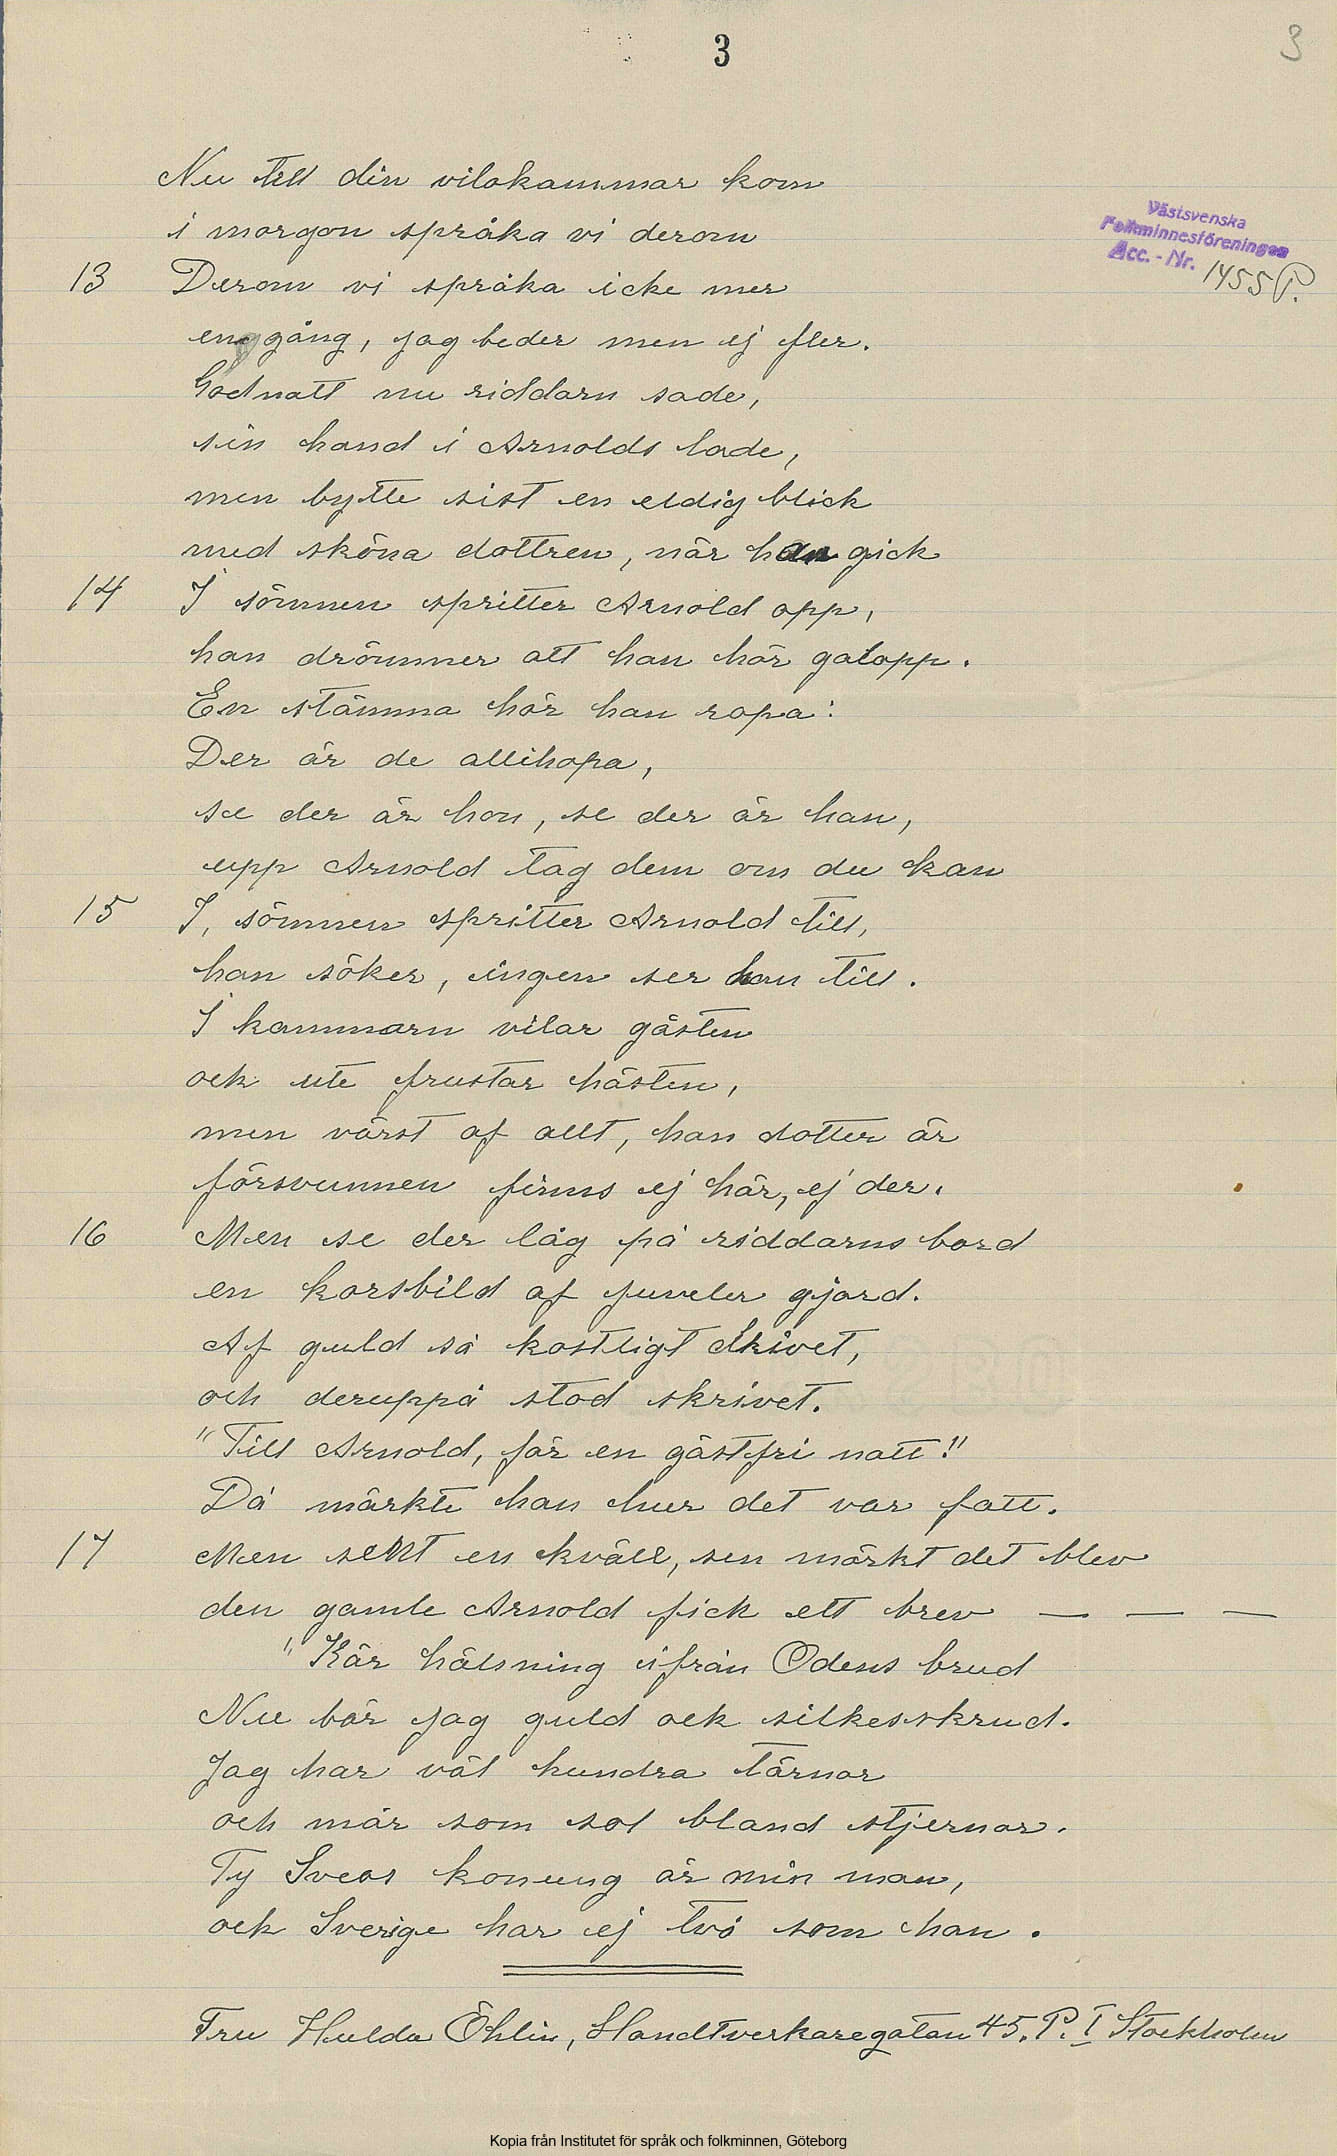 3
3
Nu till din vilokammar kom
i morgon språka vi derom
Västsvenska
Folkminnesföreningen
Acc. - Nr. 1455 P.
13 Derom vi språka icke mer
en gång, jag beder men ej fler.
Godnatt nu riddarn sade,
sin hand i Arnolds lade,
men bytte sist en eldig blick
med sköna dottren, när han gick
14 I sömnen spritter Arnold opp,
han drömmer att han hör galopp.
En stämma hör han ropa:
Der är de allihopa,
se der är hon, se der är han,
upp Arnold tag dem om du kan
15 I, sömnen spritter Arnold till,
han söker, ingen ser han till.
I kammarn vilar gästen
och ute frustar hästen,
men värst af allt, han dotter är
försvunnen finns ej här, ej der.
16 Men se der låg på riddarns bord
en korsbild af juveler gjord.
Af guld så kostligt drivet,
och deruppå stod skrivet.
"Till Arnold, för en gästfri natt!"
Då märkte han hur det var fatt.
17 Men sent en kväll, sen mörkt det blev
den gamle Arnold fick ett brev — — —
"Kär hälsning ifrån Odens brud
Nu bär jag guld och silkesskrud.
Jag har väl hundra tärnor
och mår som sol bland stjernor.
Ty Sveas konung är min man,
och Sverige har ej två som han.
Fru Hulda Öhlin, Handtverkaregatan 45. P. I Stockholm
Kopia från Institutet för språk och folkminnen, Göteborg